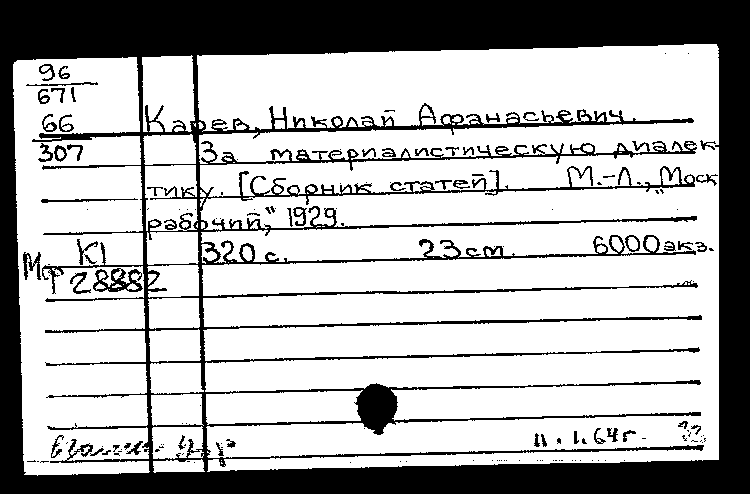 96
671
66 Карев, Николай Афанасьевич.
307 За материалистическую диалек-
тику. [Сборник статей]. М.-Л., „Моск
рабочий," 1929.
Мф К1 320 с. 23 см. 6000 экз.
28882
11.1.64г.